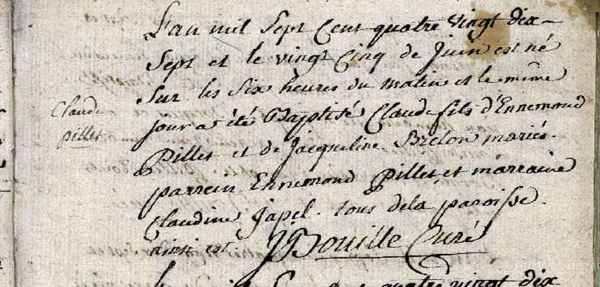 L'an mil Sept Cent quatre vingt dix
Sept et le vingt Cinq de Juin est né
Sur les Six heures du matin et le même
jour a été Baptisé Claude fils d'Ennemond
Pillet et de Jacqueline Brelon mariés.
parrein Ennemond Pillet et marraine
Claudine Japel. tous de la paroisse.
ainsi est. JBouille Curé
Claude
pillet
quatre vingt dix